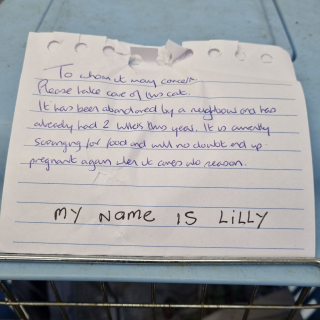 To whom it may concern
Please take care of this cat.
It has been abandoned by a neighbour and has
already had 2 litters this year. It is currently
scavenging for food and will no doubt end up
pregnant again when it comes into season.
MY NAME IS LILLY